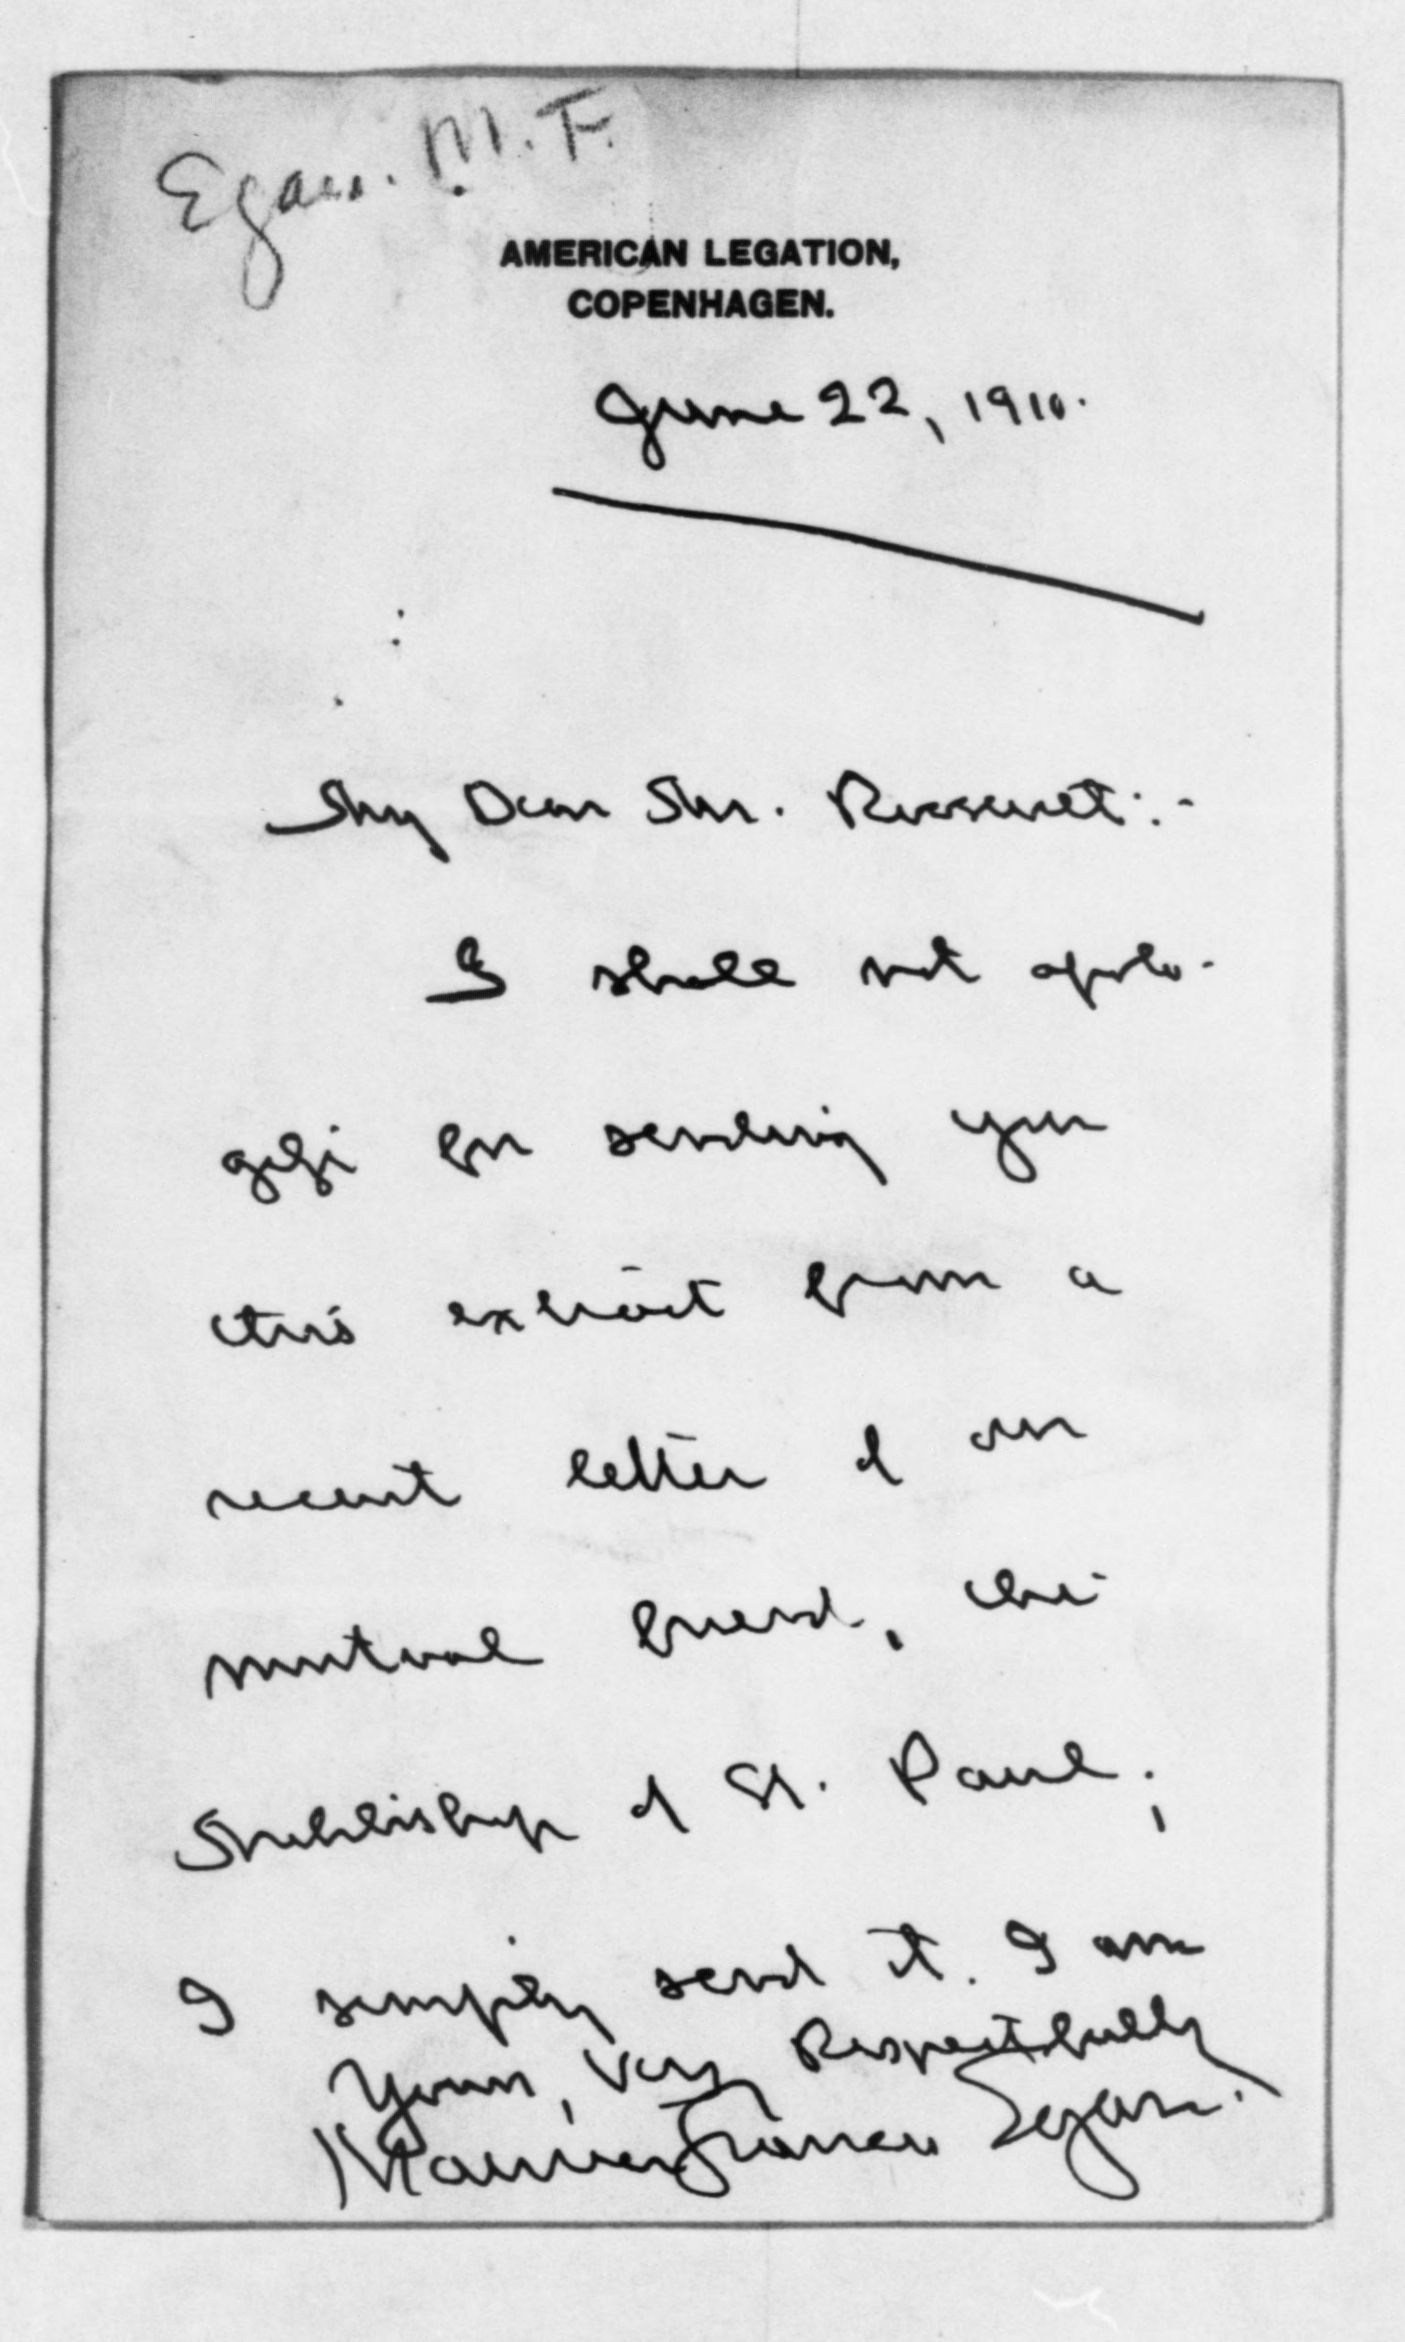 Egan. M. F.
AMERICAN LEGATION,
COPENHAGEN.
June 22, 1910.
My Dear Mr. Roosevelt:-
I shall not apolo-
gize for sending you
this extract from a
recent letter of our
mutual friend, the
Archbishop of St. Paul;
I simply send it. I am
Yours, Very Respectfully
Maurice Francis Egan.